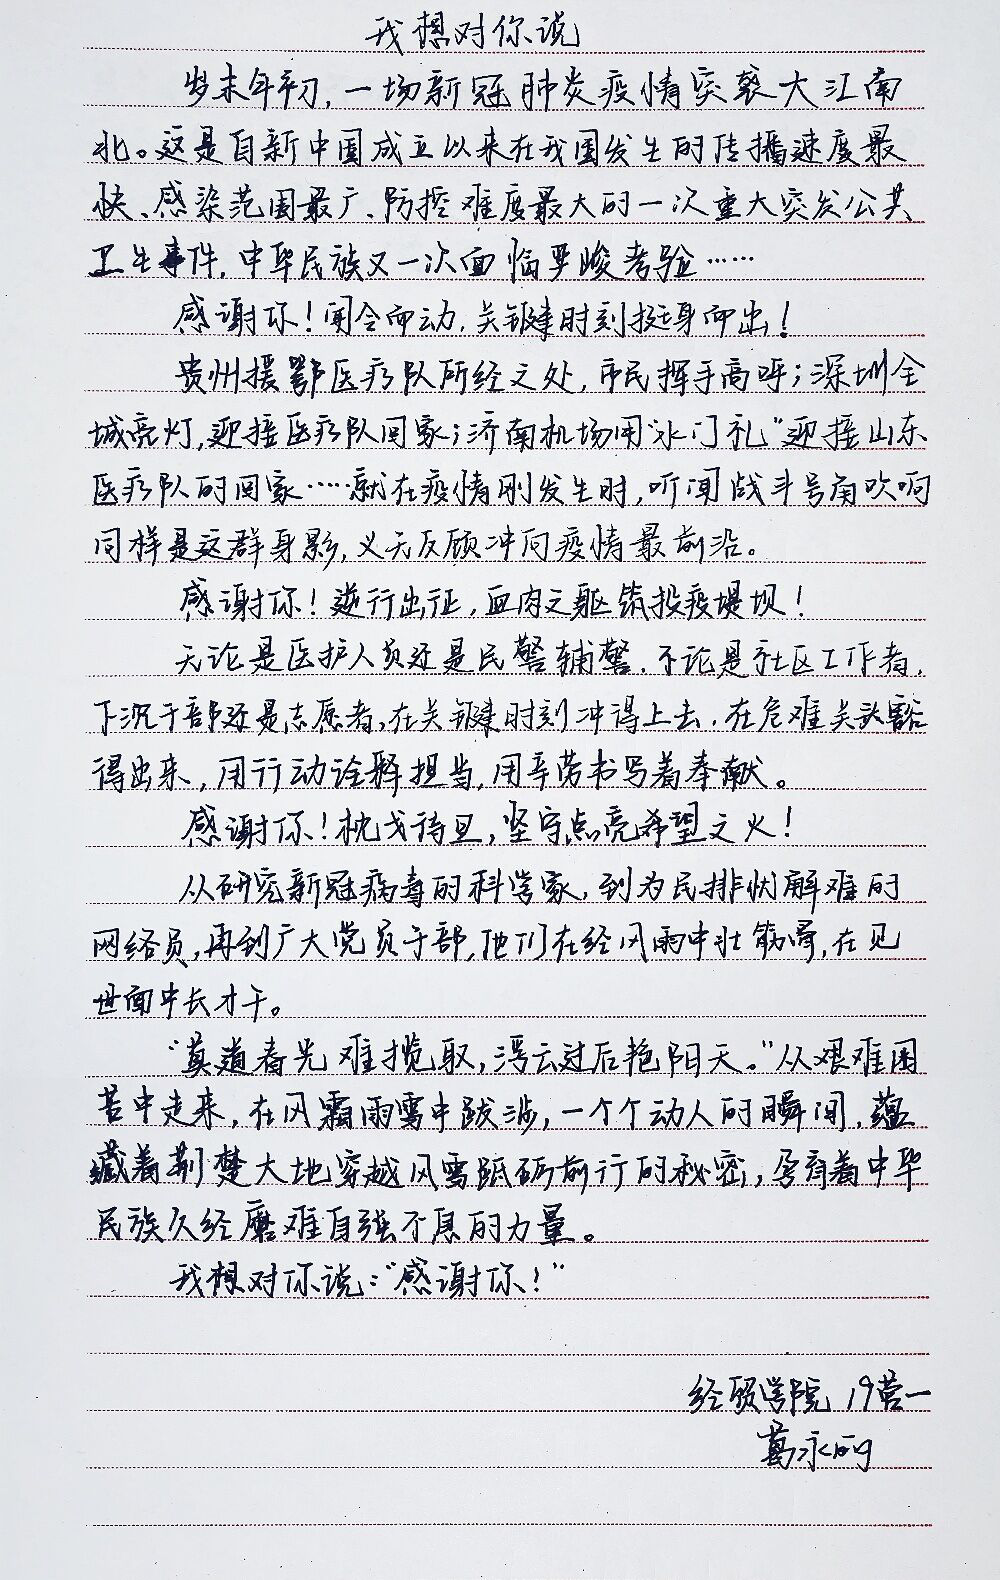 我想对你说
岁末年初，一场新冠肺炎疫情突袭大江南
北。这是自新中国成立以来在我国发生的传播速度最
快、感染范围最广、防控难度最大的一次重大突发公共
卫生事件，中华民族又一次面临严峻考验……
感谢你！闻令而动，关键时刻挺身而出！
贵州援鄂医疗队所经之处，市民挥手高呼；深圳全
城亮灯，迎接医疗队回家；济南机场用“水门礼”迎接山东
医疗队的回家……就在疫情刚发生时，听闻战斗号角吹响
同样是这群身影，义无反顾冲向疫情最前沿。
感谢你！逆行出征，血肉之躯筑投疫堤坝！
无论是医护人员还是民警辅警，不论是社区工作者，
下沉干部还是志愿者，在关键时刻冲得上去，在危难关头豁
得出来，用行动诠释担当，用辛劳书写着奉献。
感谢你！枕戈待旦，坚守点亮希望之火！
从研究新冠病毒的科学家，到为民排忧解难的
网络员，再到广大党员干部，他们在经风雨中壮筋骨，在见
世面中长才干。
“莫道春光难揽取，浮云过后艳阳天。”从艰难困
苦中走来，在风霜雨雪中跋涉，一个个动人的瞬间，蕴
藏着荆楚大地穿越风雪砥砺前行的秘密，孕育着中华
民族久经磨难自强不息的力量。
我想对你说：“感谢你！”
经贸学院 19营一
葛永